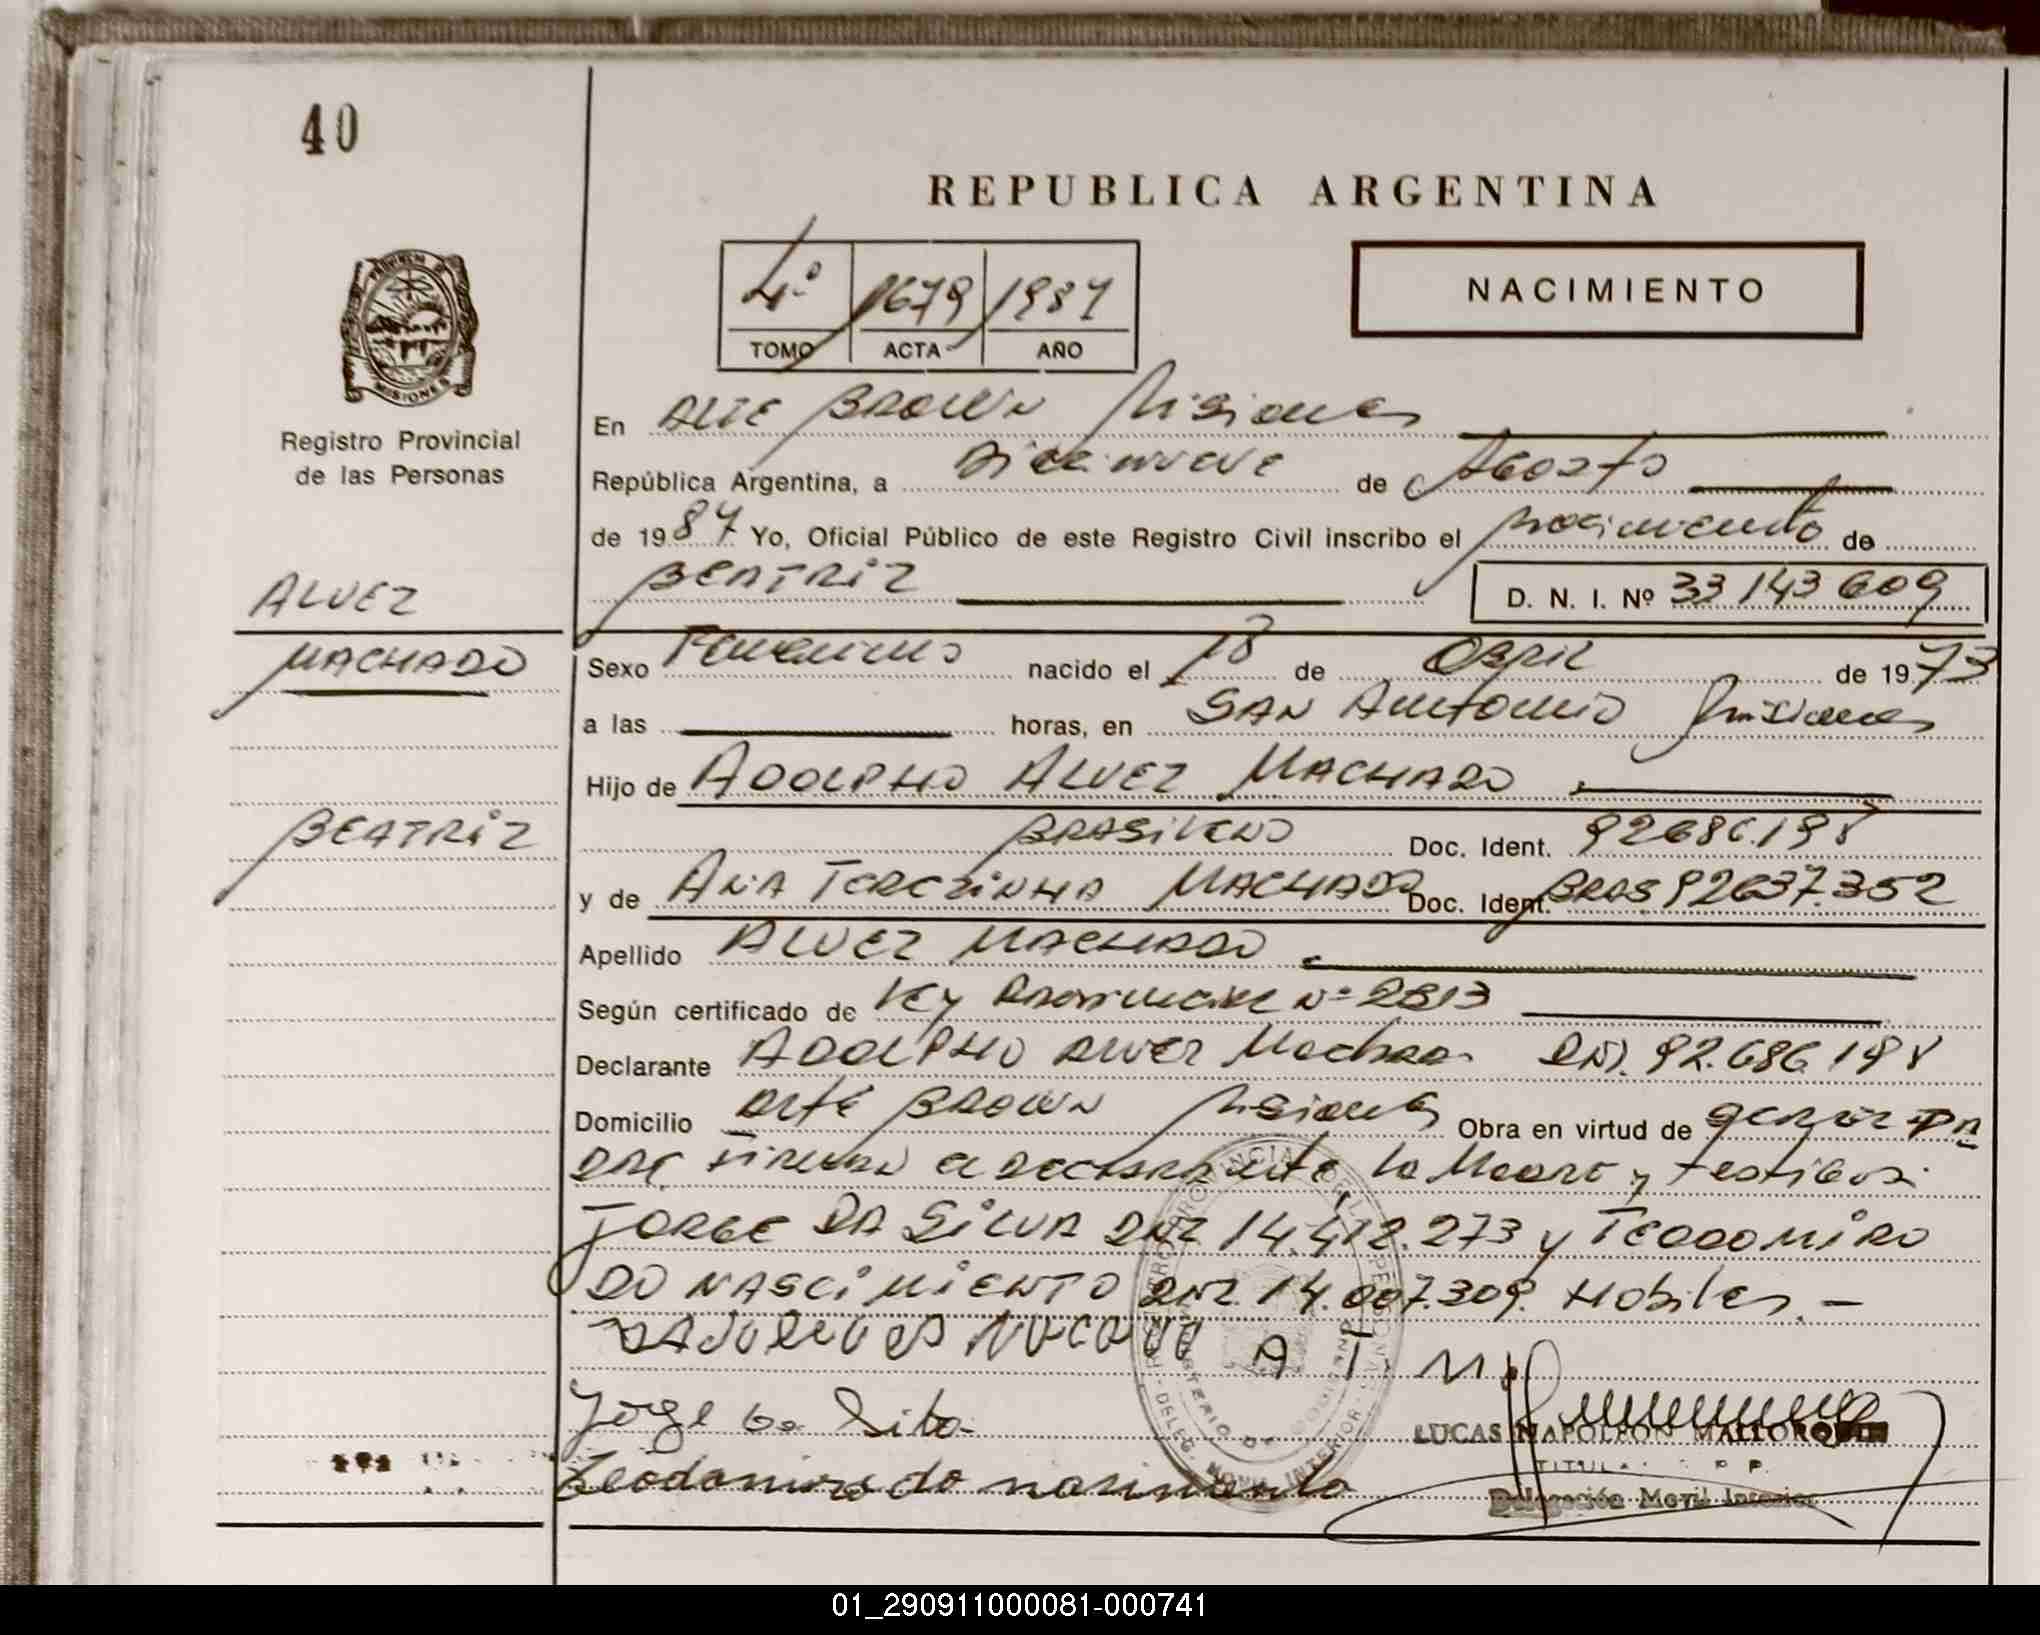 40
REPUBLICA ARGENTINA
4º 0679 1987
TOMO ACTA AÑO
NACIMIENTO
PROVINCIA DE
MISIONES
Registro Provincial
de las Personas
En ALTE BROWN Misiones
República Argentina, a Diecinueve de Agosto
de 1987 Yo, Oficial Público de este Registro Civil inscribo el nacimiento de
BEATRIZ D. N. I. Nº 33143609
ALVEZ
MACHADO
BEATRIZ
Sexo Femenino nacido el 18 de Abril de 1973
a las horas, en SAN Antonio Misiones
Hijo de ADOLPHO ALVEZ MACHADO
BRASILENO Doc. Ident. 92686.198
y de ANA TEREZINHA MACHADO Doc. Ident. BRAS 92637.352
Apellido ALVEZ MACHADO
Según certificado de Ley Provincial Nº 2813
Declarante ADOLPHO Alvez Machado DNI. 92.686.198
Domicilio Alte BROWN Misiones Obra en virtud de
el declarante, la Madre y testigos:
JORGE DA SILVA DNI 14.412.273 y TEODOMIRO
DO NASCIMIENTO DNI. 14.007.309. Hobiles. —
A T M
Jorge da Silva
LUCAS NAPOLEON MALLORQUIN
TITULAR
Teodomiro do nasimento
Delegación Movil Interior
01_290911000081-000741